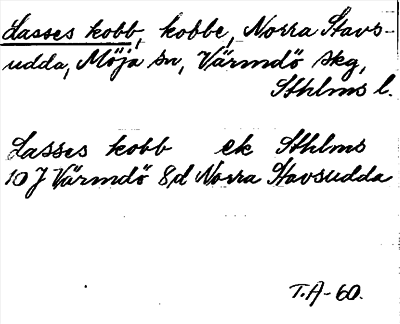 Lasses kobb, kobbe, Norra Stavs-
udda, Möja sn, Värmdö skg,
Sthlms l.
Lasses kobb ek Sthlms
10 J Värmdö 8,d Norra Stavsudda
T.A-60.